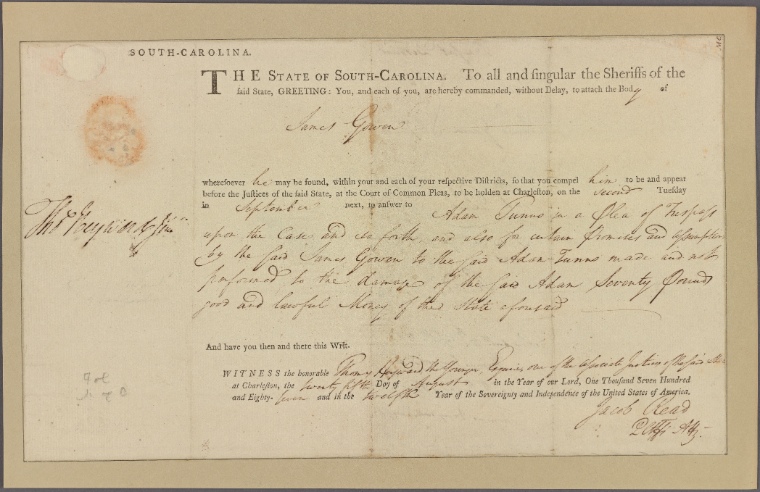 SOUTH-CAROLINA.
THE STATE OF SOUTH-CAROLINA. To all and singular the Sheriffs of the
said State, GREETING: You, and each of you, are hereby commanded, without Delay, to attach the Body of
James Gowen
wheresoever he may be found, within your and each of your respective Districts, so that you compel him to be and appear
before the Justices of the said State, at the Court of Common Pleas, to be holden at Charleston, on the second Tuesday
in September next, to answer to Adam Tunno in a Plea of Trespass
upon the Case and so forth, and also for certain Promises and assumptions
by the said James Gowen to the said Adam Tunno made and not
performed to the damage of the said Adam Seventy Pounds
good and lawful Money of the State aforesaid
Thos Heyward Junr
And have you then and there this Writ.
WITNESS the honorable Thomas Heyward the Younger Esquire, one of the associate Justices of the said State
at Charleston, the twenty fifth Day of August in the Year of our Lord, One Thousand Seven Hundred
and Eighty-seven and in the twelfth Year of the Sovereignty and Independence of the United States of America.
Jacob Read
Plffs Atty.